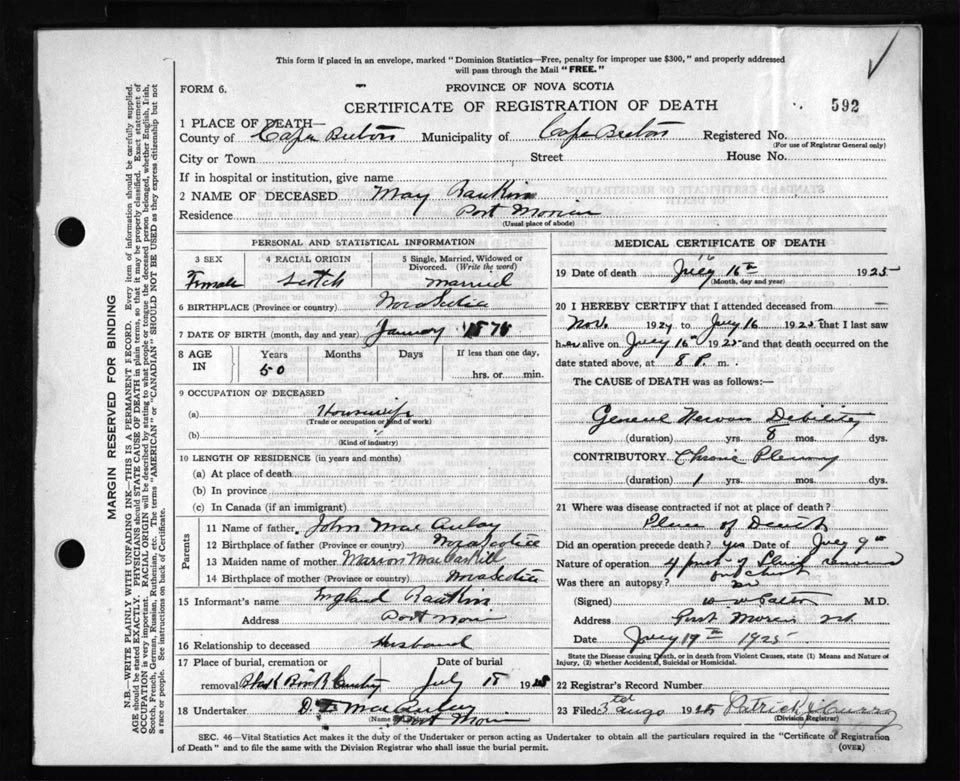 This form if placed in an envelope, marked "Dominion Statistics—Free, penalty for improper use $300," and properly addressed
will pass through the Mail "FREE."
FORM 6.
PROVINCE OF NOVA SCOTIA
CERTIFICATE OF REGISTRATION OF DEATH
592
1 PLACE OF DEATH—
County of Cape Breton Municipality of Cape Breton Registered No.
(For use of Registrar General only)
City or Town Street House No.
If in hospital or institution, give name
2 NAME OF DECEASED May Rankin
Residence Port Morien
(Usual place of abode)
PERSONAL AND STATISTICAL INFORMATION
3 SEX 4 RACIAL ORIGIN 5 Single, Married, Widowed or Divorced. (Write the word)
Female Scotch Married
6 BIRTHPLACE (Province or country) Nova Scotia
7 DATE OF BIRTH (month, day and year) January 1875
8 AGE IN Years Months Days If less than one day,
50 hrs. or min.
9 OCCUPATION OF DECEASED
(a) Housewife
(Trade or occupation or kind of work)
(b)
(Kind of industry)
10 LENGTH OF RESIDENCE (in years and months)
(a) At place of death
(b) In province
(c) In Canada (if an immigrant)
Parents
11 Name of father John MacAulay
12 Birthplace of father (Province or country) Nova Scotia
13 Maiden name of mother Marion MacCaskill
14 Birthplace of mother (Province or country) Nova Scotia
15 Informant's name England Rankin
Address Port Morien
16 Relationship to deceased Husband
17 Place of burial, cremation or Date of burial
removal Black Brook Cemetry July 18 1925
18 Undertaker D. MacAulay
(Name Port Morien
MEDICAL CERTIFICATE OF DEATH
16
19 Date of death July 16th 1925
(Month, day and year)
20 I HEREBY CERTIFY that I attended deceased from
Nov. 1924 to July 16 1925 that I last saw
her alive on July 16th 1925 and that death occurred on
date stated above, at 8 P. m.
The CAUSE OF DEATH was as follows:—
General Nervous Debility
(duration) yrs. 8 mos. dys.
CONTRIBUTORY Chronic Pleurisy
(duration) 1 yrs. mos. dys.
21 Where was disease contracted if not at place of death?
Place of Death
Did an operation precede death? yes Date of July 9th
Nature of operation 4 of removed
Was there an autopsy? No
(Signed) M.D.
Address Port Morien N.S.
Date July 19th 1925
State the Disease causing Death, or in death from Violent Causes, state (1) Means and Nature of
Injury, (2) whether Accidental, Suicidal or Homicidal.
22 Registrar's Record Number
23 Filed 3rd Aug 1925 Patrick J. Curry
(Division Registrar)
SEC. 46—Vital Statistics Act makes it the duty of the Undertaker or person acting as Undertaker to obtain all the particulars required in the "Certificate of Registration
of Death" and to file the same with the Division Registrar who shall issue the burial permit.
(OVER)
MARGIN RESERVED FOR BINDING
N.B.—WRITE PLAINLY WITH UNFADING INK—THIS IS A PERMANENT RECORD. Every item of information should be carefully supplied.
AGE should be stated EXACTLY. PHYSICIANS should STATE CAUSE OF DEATH in plain terms, so that it may be properly classified. Exact statement of
OCCUPATION is very important. RACIAL ORIGIN will be described by stating to what people or tongue the deceased person belonged, whether English, Irish,
Scotch, French, German, Russian, Ruthenian, etc. The terms "AMERICAN" or "CANADIAN" SHOULD NOT BE USED as they express citizenship but not
a race or people. See instructions on back of Certificate.